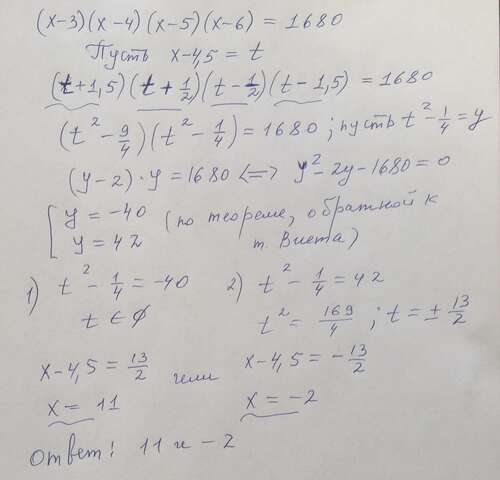 (x-3)(x-4)(x-5)(x-6) = 1680
Пусть x-4,5 = t
(t+1,5)(t+1/2)(t-1/2)(t-1,5) = 1680
(t² - 9/4)(t² - 1/4) = 1680; пусть t² - 1/4 = y
(y-2)·y = 1680 <=> y² - 2y - 1680 = 0
[ y = -40 (по теореме, обратной к
y = 42 т. Виета)
1) t² - 1/4 = -40 2) t² - 1/4 = 42
t ∈ ∅ t² = 169/4; t = ± 13/2
x-4,5 = 13/2 или x-4,5 = -13/2
x = 11 x = -2
Ответ: 11 и -2